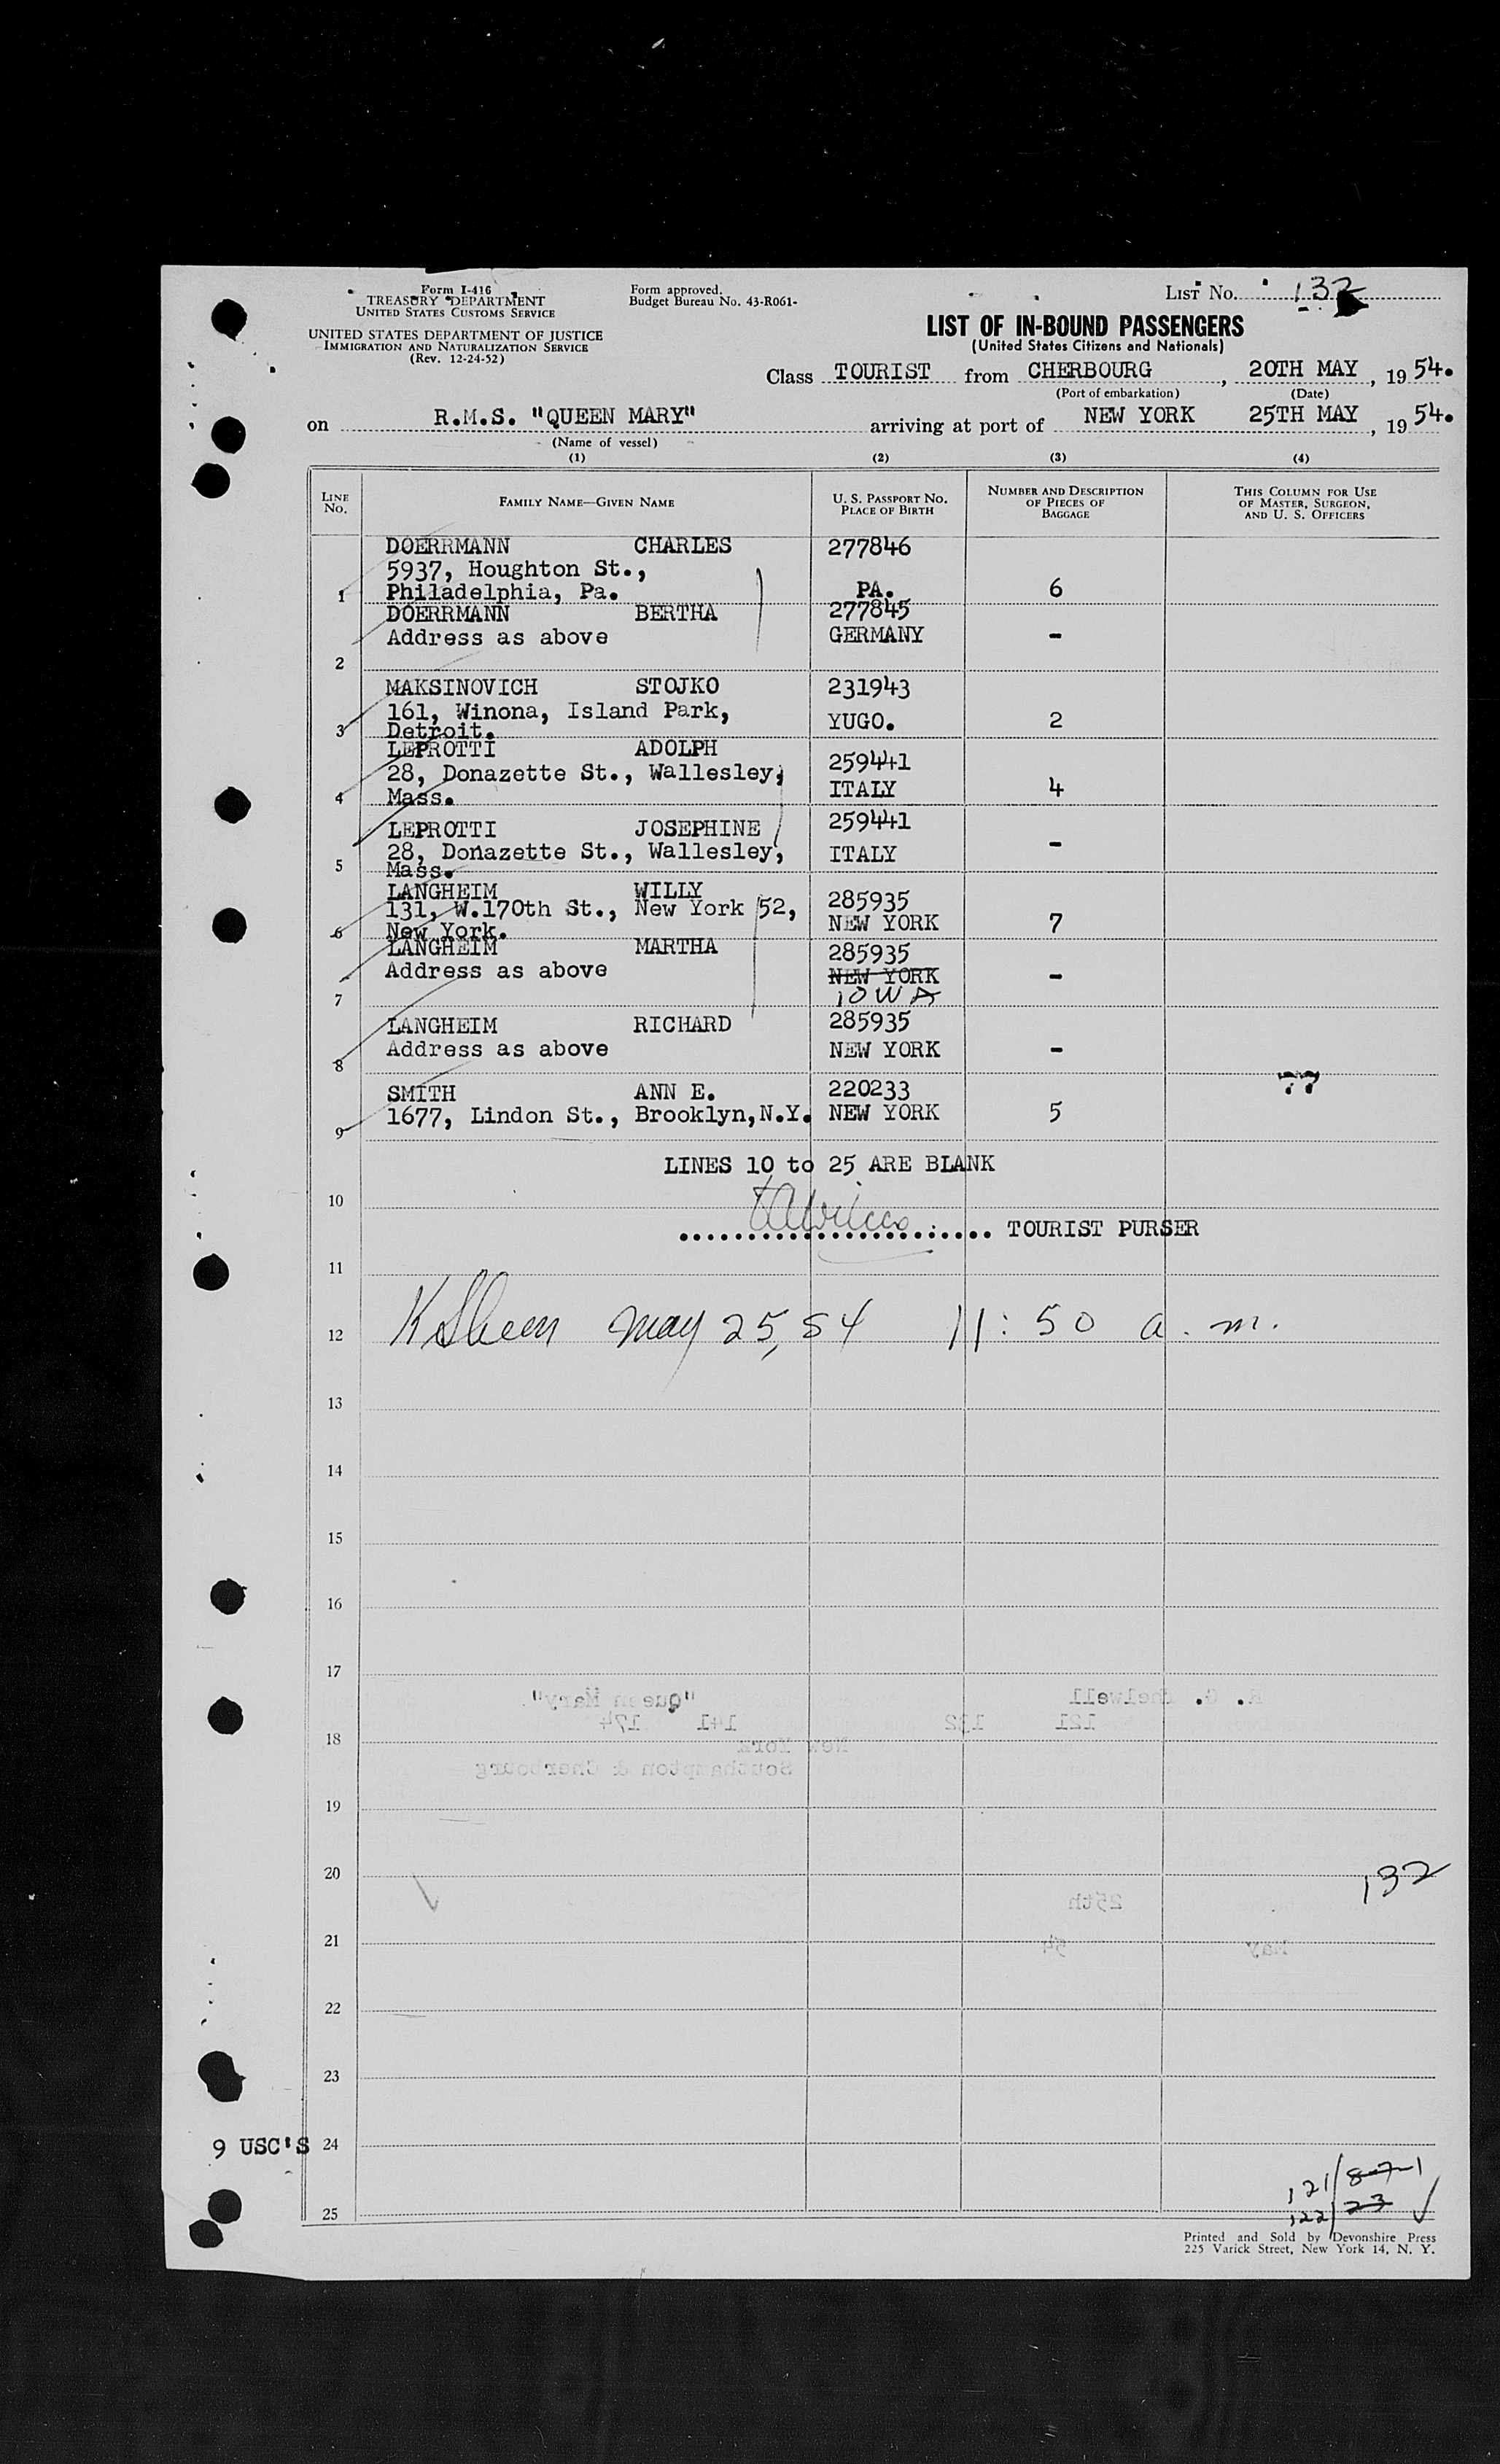 Form I-416
TREASURY DEPARTMENT
UNITED STATES CUSTOMS SERVICE
UNITED STATES DEPARTMENT OF JUSTICE
IMMIGRATION AND NATURALIZATION SERVICE
(Rev. 12-24-52)
Form approved.
Budget Bureau No. 43-R061-
LIST No. 132
LIST OF IN-BOUND PASSENGERS
(United States Citizens and Nationals)
Class TOURIST from CHERBOURG, 20TH MAY, 1954.
(Port of embarkation) (Date)
on R.M.S. "QUEEN MARY" arriving at port of NEW YORK 25TH MAY, 1954.
(Name of vessel)
(1) (2) (3) (4)
LINE No. FAMILY NAME—GIVEN NAME U. S. PASSPORT NO. PLACE OF BIRTH NUMBER AND DESCRIPTION OF PIECES OF BAGGAGE THIS COLUMN FOR USE OF MASTER, SURGEON, AND U. S. OFFICERS
DOERRMANN CHARLES 277846
5937, Houghton St.,
1 Philadelphia, Pa. PA. 6
DOERRMANN BERTHA 277845
Address as above GERMANY -
2
MAKSINOVICH STOJKO 231943
161, Winona, Island Park, YUGO. 2
3 Detroit.
LEPROTTI ADOLPH 259441
28, Donazette St., Wallesley,
4 Mass. ITALY 4
LEPROTTI JOSEPHINE 259441
28, Donazette St., Wallesley, ITALY -
5 Mass.
LANGHEIM WILLY 285935
131, W.170th St., New York 52, NEW YORK 7
6 New York.
LANGHEIM MARTHA 285935
Address as above NEW YORK -
7 IOWA
LANGHEIM RICHARD 285935
Address as above NEW YORK -
8
77
SMITH ANN E. 220233
1677, Lindon St., Brooklyn,N.Y. NEW YORK 5
9
LINES 10 to 25 ARE BLANK
10
TOURIST PURSER
11
12 May 25, 54 11:50 a.m.
13
14
15
16
17
"Queen Mary"
121 132 141 174
18 New York
Southampton & Cherbourg
19
20 132
25th
21 May 54
22
23
9 USC'S 24
121/871
122/23
25
Printed and Sold by Devonshire Press
225 Varick Street, New York 14, N. Y.